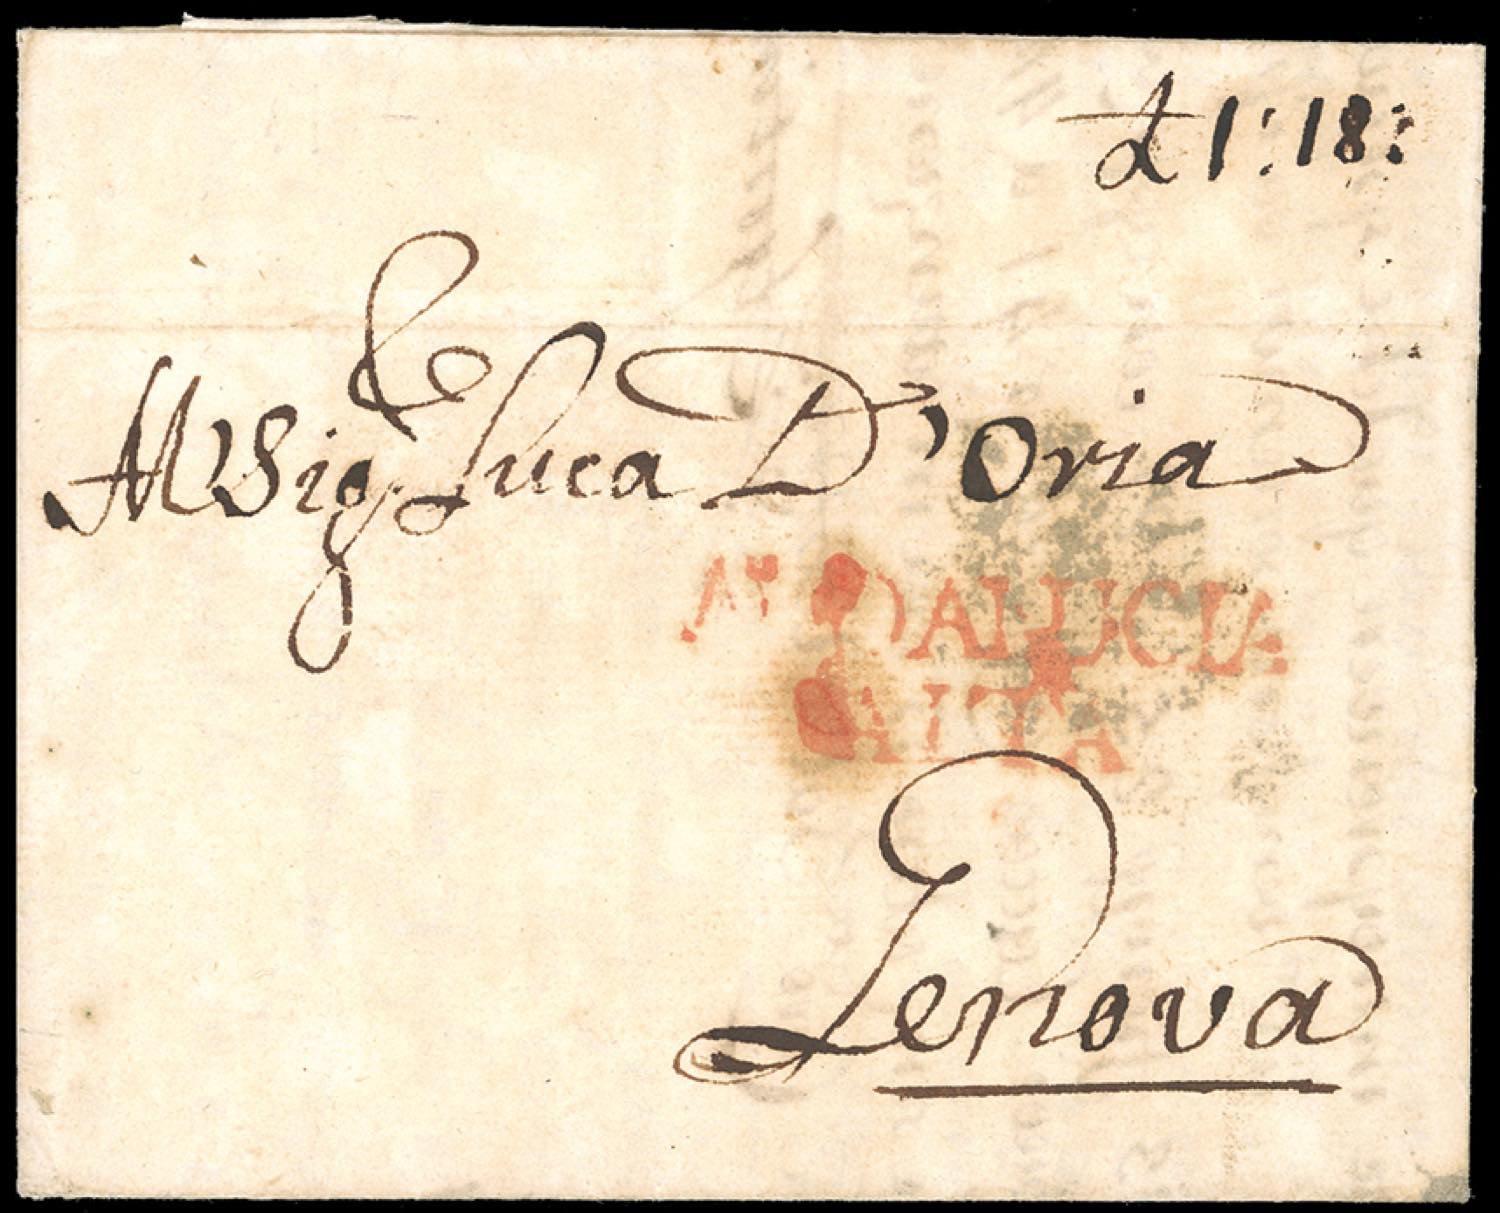 £ 1:18:
Al Sig.re Luca D'Oria
ANDALUCIA
ALTA
Genova